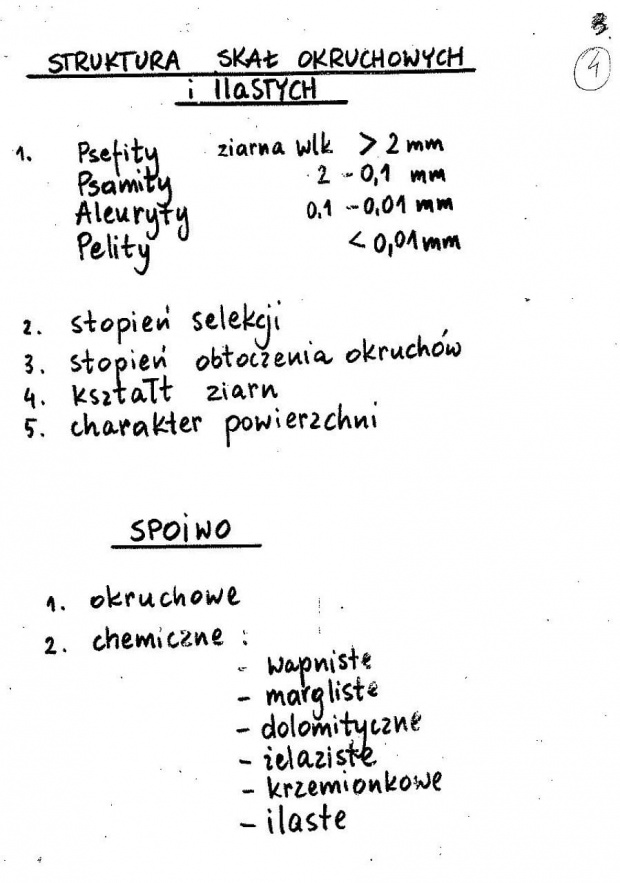 4
STRUKTURA SKAŁ OKRUCHOWYCH
i IlaSTYCH
1. Psefity ziarna wlk > 2 mm
Psamity 2 - 0,1 mm
Aleuryty 0.1 - 0,01 mm
Pelity < 0,01 mm
2. stopień selekcji
3. stopień obtoczenia okruchów
4. kształt ziarn
5. charakter powierzchni
SPOiWO
1. okruchowe
2. chemiczne :
- wapniste
- margliste
- dolomityczne
- żelaziste
- krzemionkowe
- ilaste